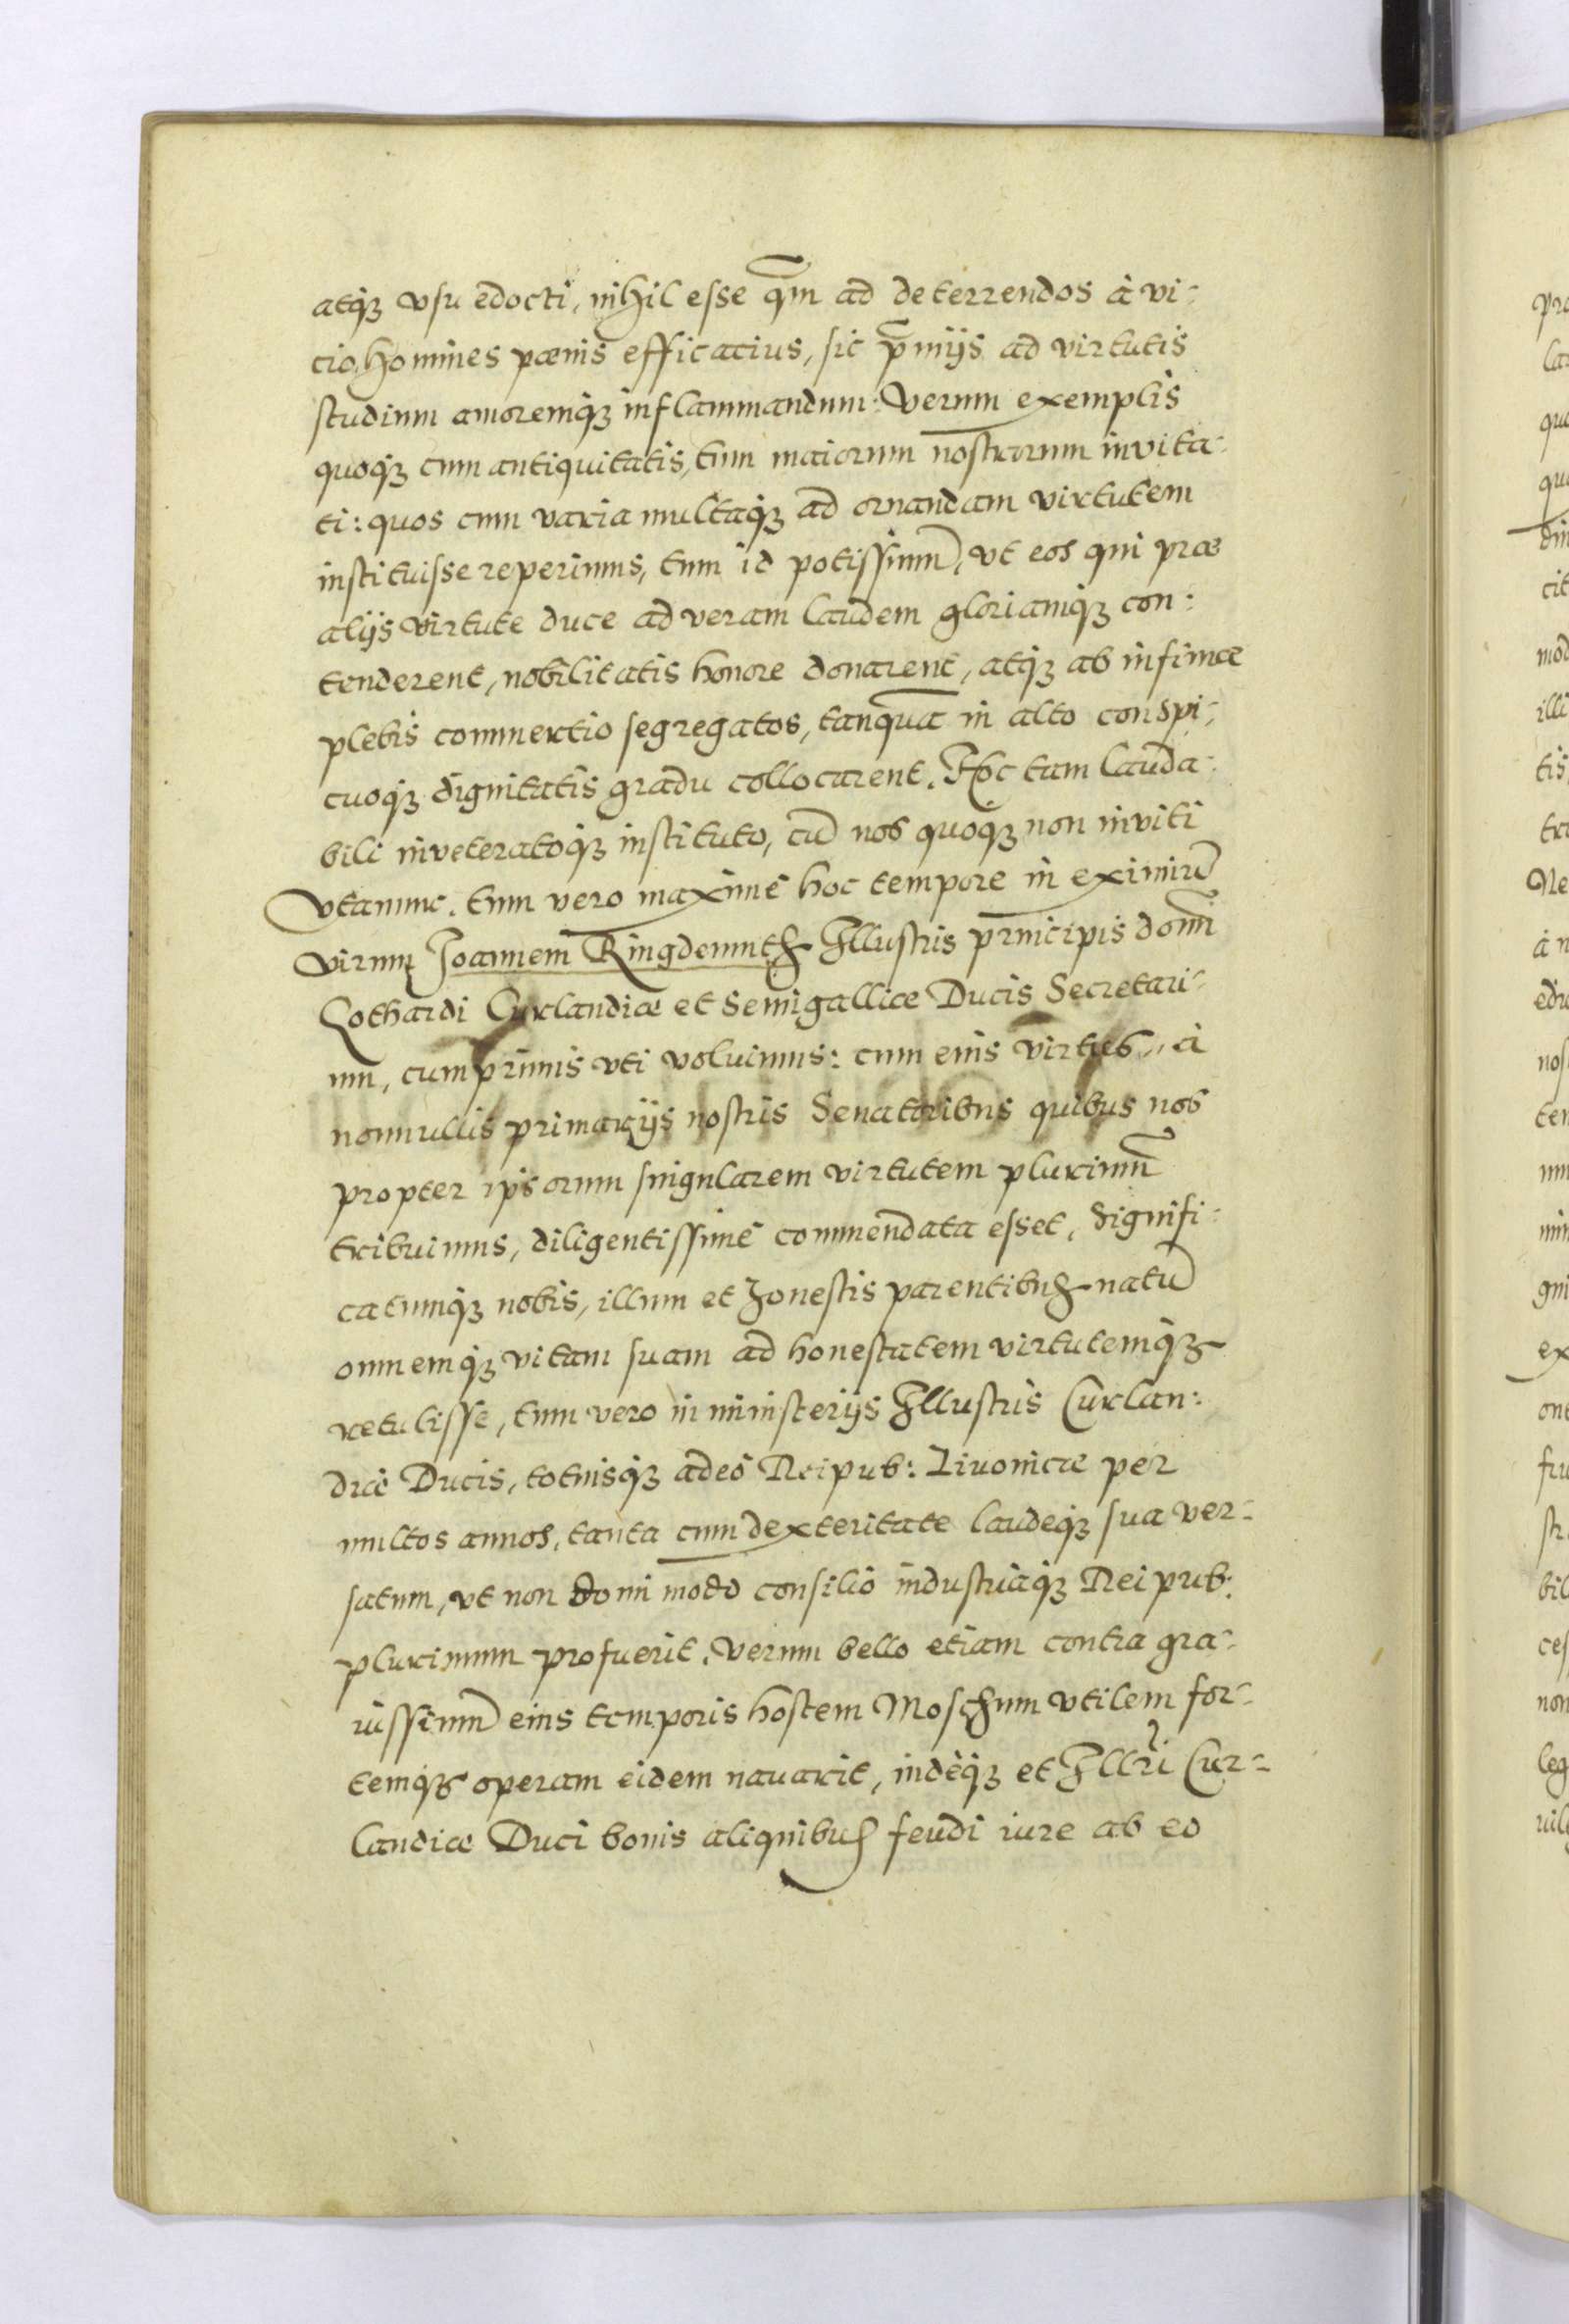 atqꝫ vsu edocti, nihil esse qm̃ ad deterrendos à vi-
cio homines pœnis efficacius, sic p̃mijs ad virtutis
studium amoremqꝫ inflammandum: Verum exemplis
quoqꝫ cum antiquitatis, tum maiorum nostrorum invita-
ti: quos cum varia multaqꝫ ad ornandam virtutem
instituisse reperimus, tum id potissimũ, vt eos qui præ
alijs virtute duce ad veram laudem gloriamqꝫ con:
tenderent, nobilitatis honore donarent, atqꝫ ab infimæ
plebis commertio segregatos, tanquã in alto conspi-
cuoqꝫ dignitatis gradu collocarent. Hoc tam lauda-
bili inveteratoqꝫ instituto, cũ nos quoqꝫ non inviti
vtamur. tum vero maximè hoc tempore in eximiũ
virum Joannem Ringdemuth Illustris principis domĩ
Gothardi Curlandiæ et Semigalliæ Ducis Secretari-
um, cumprimis vti voluimus: cum eius virtus, à
nonnullis primarijs nostris Senatoribus quibus nos
propter ipsorum singularem virtutem plurimũ
tribuimus, diligentissimè commendata esset, signifi-
catumqꝫ nobis, illum et honestis parentibus natũ
omnemqꝫ vitam suam ad honestatem virtutemqꝫ
retulisse, tum vero in ministerijs Illustris Curlan:
diæ Ducis, totiusqꝫ adeò Reipub: Livonicæ per
multos annos, tanta cum dexteritate laudeqꝫ sua ver-
satum, vt non domi modo consilio industriaqꝫ Reipub:
plurimum profuerit. verum bello etiam contra gra-
uissimũ eius temporis hostem Moschum vtilem for-
temqꝫ operam eidem nauarit, indeqꝫ et Illri Cur-
landiæ Duci bonis aliquibus feudi iure ab eo